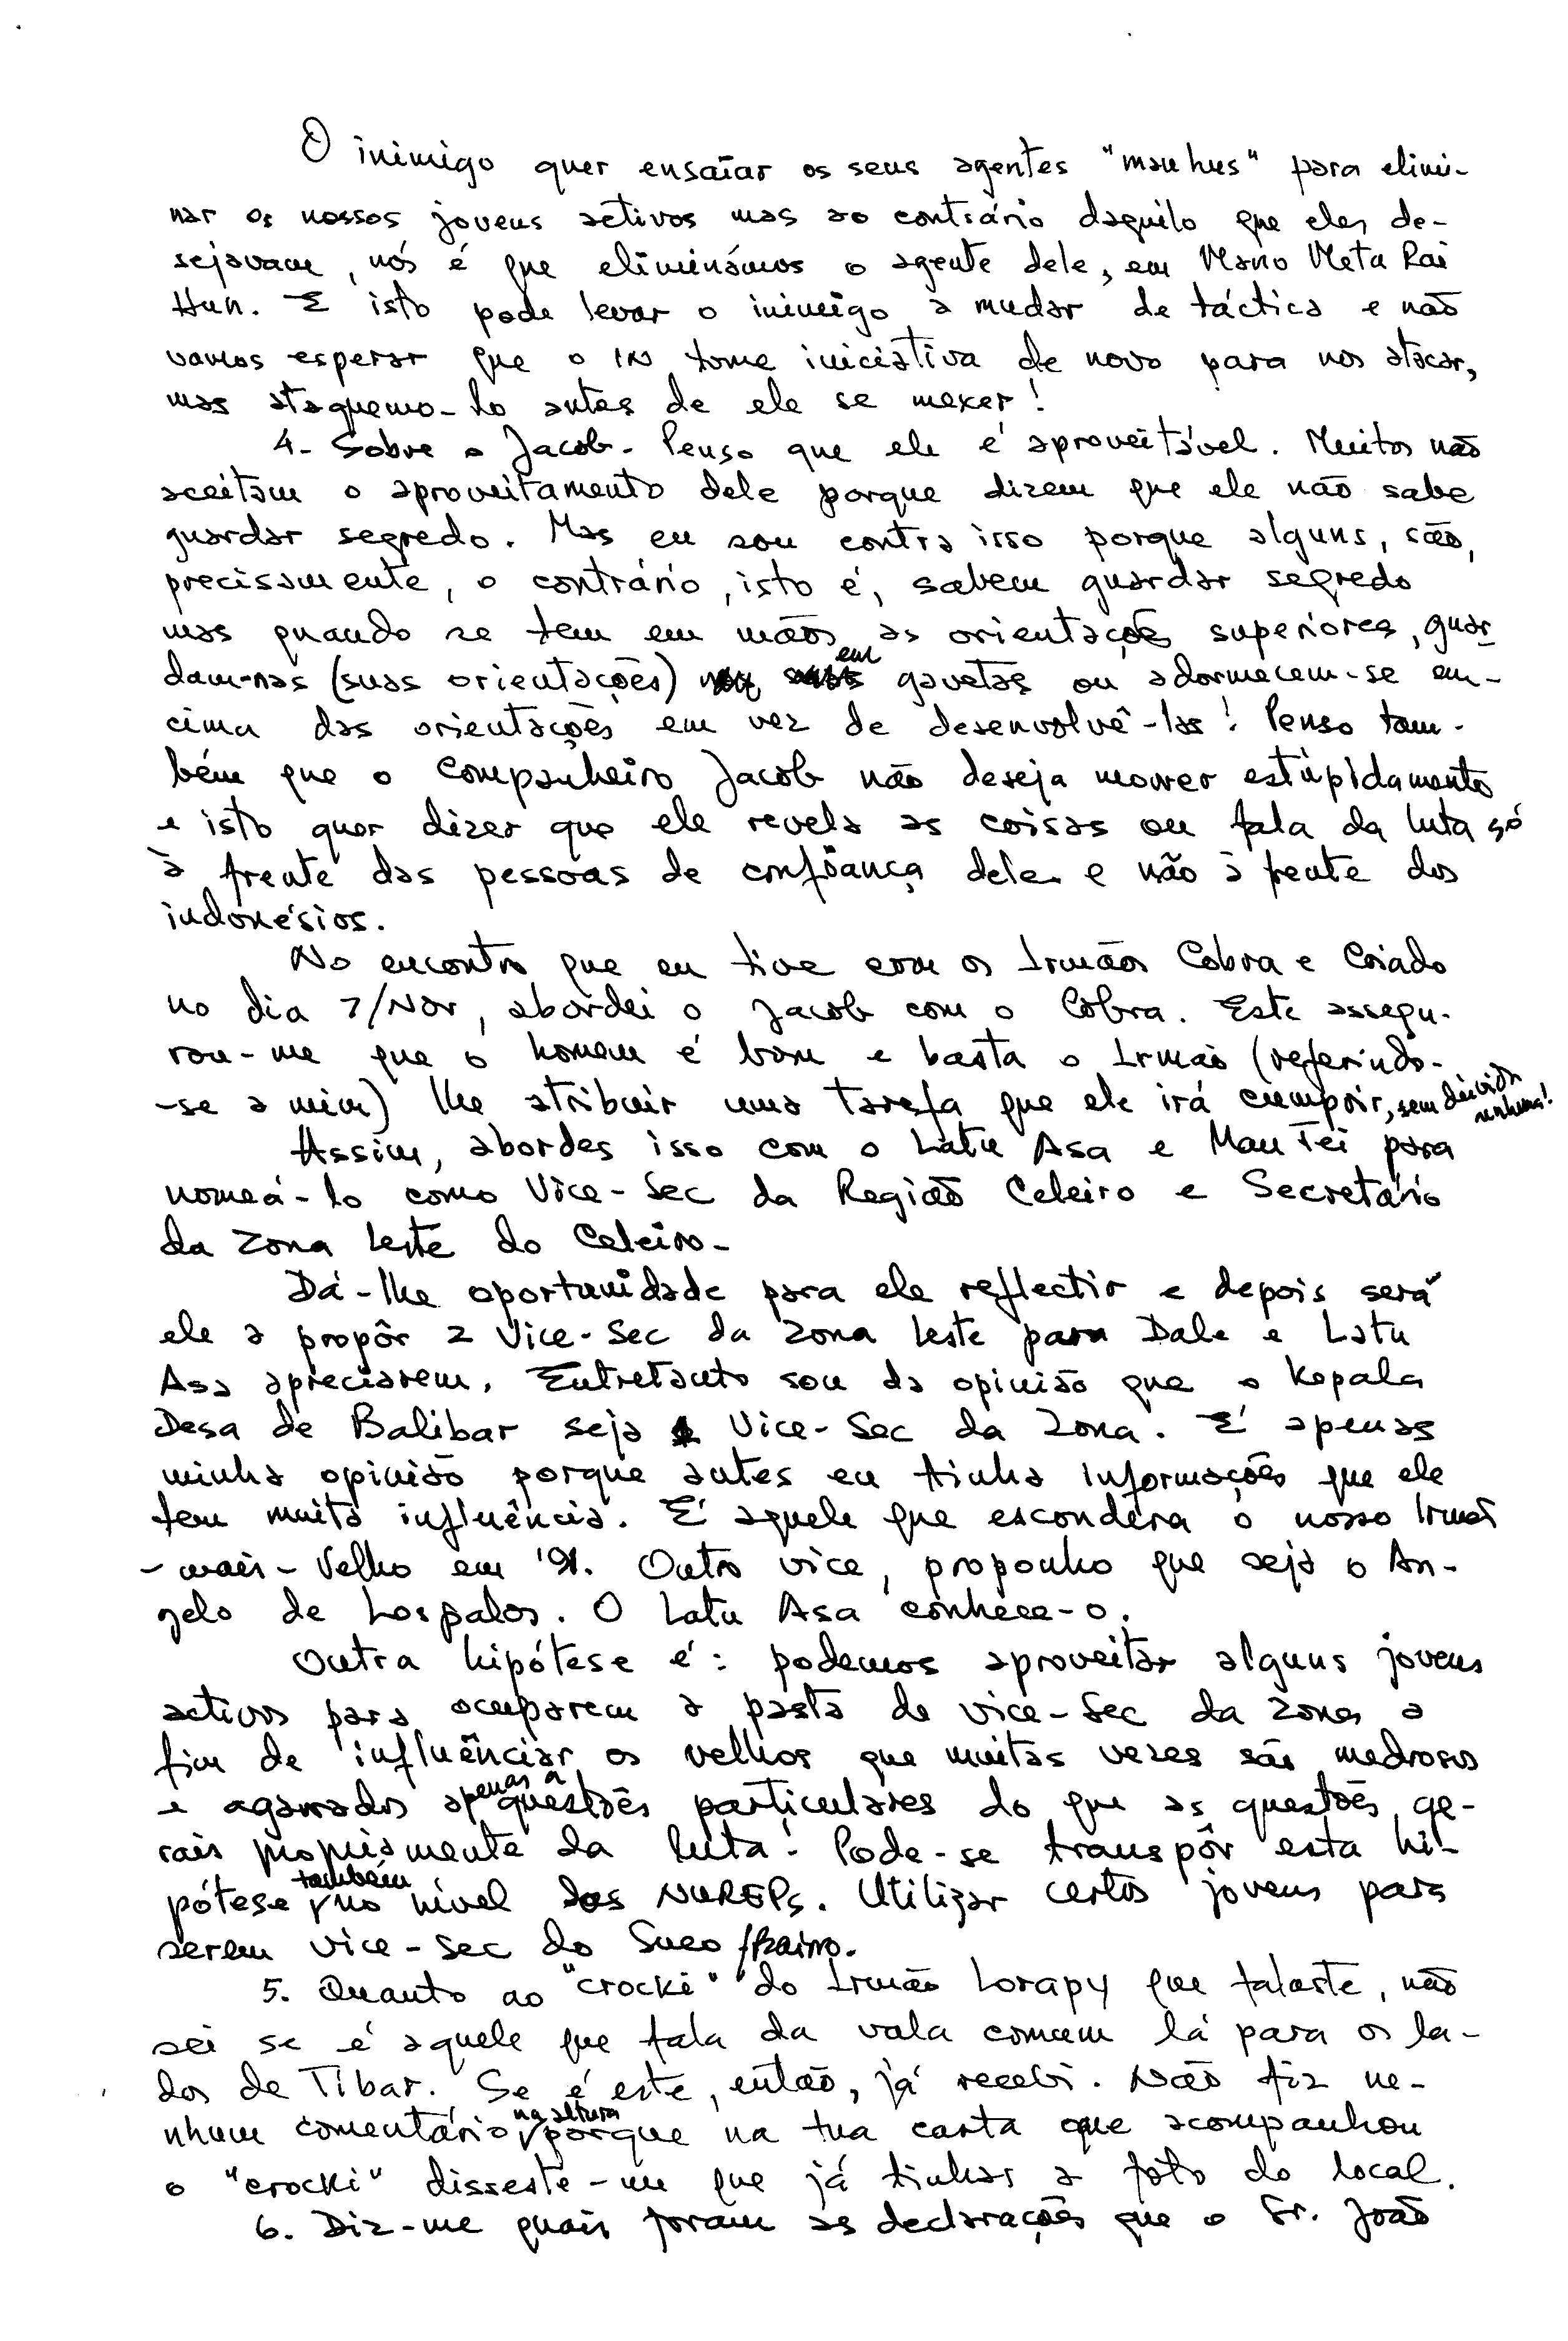 O inimigo quer ensaiar os seus agentes "mauhus" para elimi-
nar os nossos jovens activos mas ao contrário daquilo que eles de-
sejavam, nós é que eliminámos o agente dele, em Mano Meta Rai
Hun. E isto pode levar o inimigo a mudar de táctica e não
vamos esperar que o IN tome iniciativa de novo para nos atacar,
mas ataquemo-lo antes de ele se mexer!
4- Sobre o Jacob- Penso que ele é aproveitável. Muitos não
aceitam o aproveitamento dele porque dizem que ele não sabe
guardar segredo. Mas eu sou contra isso porque alguns, são,
precisamente, o contrário, isto é, sabem guardar segredo
mas quando se tem em mãos as orientações superiores, guar
dam-nas (suas orientações) em gavetas ou adormecem-se em-
cima das orientações em vez de desenvolvê-las! Penso tam-
bém que o Companheiro Jacob não deseja morrer estúpidamente
e isto quer dizer que ele revela as coisas ou fala da luta só
à frente das pessoas de confiança dele e não à frente dos
indonésios.
No encontro que eu tive com os Irmãos Cobra e Criado
no dia 7/Nov, abordei o Jacob com o Cobra. Este assegu-
rou-me que o homem é bom e basta o Irmão (referindo-
-se a mim) lhe atribuir uma tarefa que ele irá cumprir, sem dúvida nenhuma!
Assim, abordes isso com o Latu Asa e Mau Tei para
nomeá-lo como Vice-Sec da Região Celeiro e Secretário
da Zona Leste do Celeiro-
Dá-lhe oportunidade para ele reflectir e depois será
ele a propôr 2 Vice-Sec da Zona Leste para Dale e Latu
Asa apreciarem. Entretanto sou da opinião que o Kepala
Desa de Balibar seja Vice-Sec da Zona. É apenas
minha opinião porque antes eu tinha informações que ele
tem muita influência. É aquele que escondera o nosso Irmão
-mais-Velho em '91. Outro vice, proponho que seja o An-
gelo de Lospalos. O Latu Asa conhece-o.
Outra hipótese é: podemos aproveitar alguns jovens
activos para ocuparem a pasta de vice-Sec da Zona a
fim de influênciar os velhos que muitas vezes são medrosos
e agarrados apenas a questões particulares do que as questões ge-
rais propriamente da luta! Pode-se transpôr esta hi-
pótese também no nível dos NUREPs. Utilizar certos jovens para
serem vice-sec do Suco/Bairro.
5. Quanto ao "crocki" do Irmão Lorapy que falaste, não
sei se é aquele que fala da vala comum lá para os la-
dos de Tibar. Se é este, então, já recebi. Não fiz ne-
nhum comentário na altura porque na tua carta que acompanhou
o "crocki" disseste-me que já tinhas a foto do local.
6. Diz-me quais foram as declarações que o Sr. João